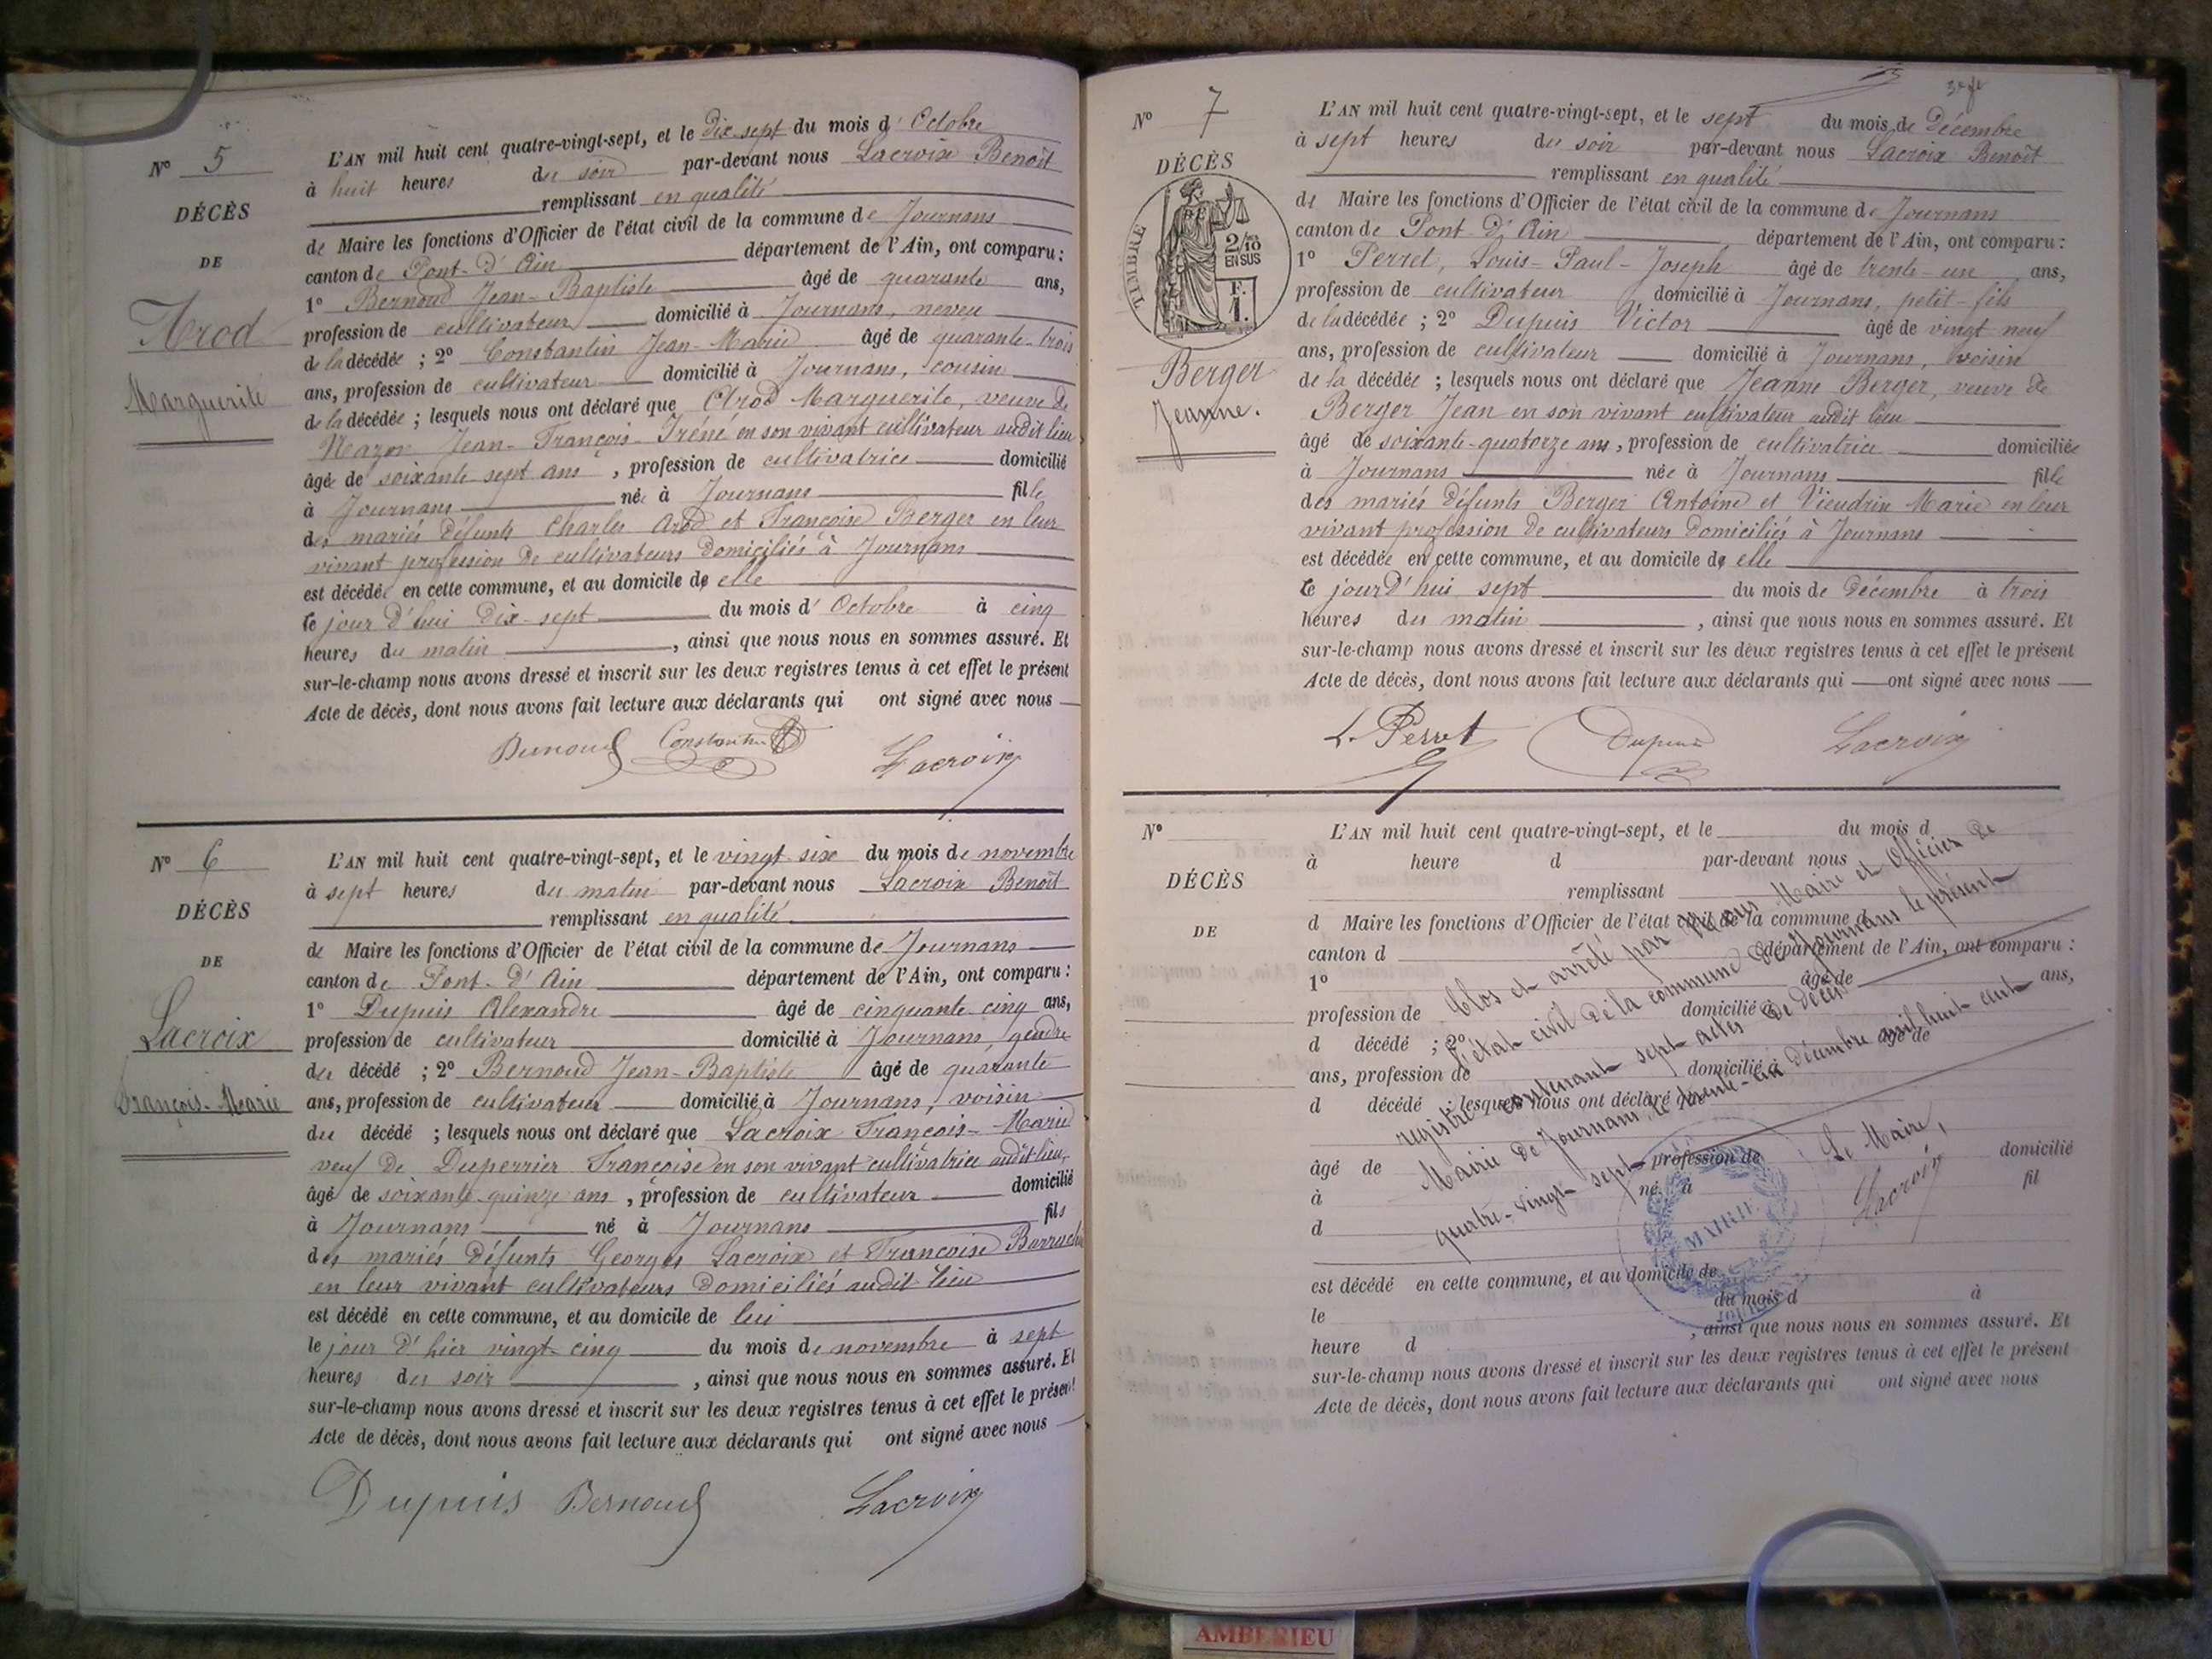 Nº 5
DÉCÈS
DE
Arod
Marguerite
L'AN mil huit cent quatre-vingt-sept, et le dix sept du mois d'Octobre
à huit heures du soir par-devant nous Lacroix Benoît
remplissant en qualité
de Maire les fonctions d'Officier de l'état civil de la commune de Journans
canton de Pont-d'Ain département de l'Ain, ont comparu :
1º Bernoud Jean-Baptiste âgé de quarante ans,
profession de cultivateur domicilié à Journans, neveu
de la décédée ; 2º Constantin Jean-Marie âgé de quarante-trois
ans, profession de cultivateur domicilié à Journans, cousin
de la décédée ; lesquels nous ont déclaré que Arod Marguerite, veuve de
Jean-François-Iréné en son vivant cultivateur audit lieu
âgée de soixante sept ans, profession de cultivatrice domicilié
à Journans née à Journans fille
des mariés défunts Charles Arod et Françoise Berger en leur
vivant profession de cultivateurs domiciliés à Journans
est décédée en cette commune, et au domicile de elle
ce jour d'hui dix-sept du mois d'Octobre à cinq
heures du matin, ainsi que nous nous en sommes assuré. Et
sur-le-champ nous avons dressé et inscrit sur les deux registres tenus à cet effet le présent
Acte de décès, dont nous avons fait lecture aux déclarants qui ont signé avec nous
Bernoud Constantin Lacroix
Nº 6
DÉCÈS
DE
Lacroix
François-Marie
L'AN mil huit cent quatre-vingt-sept, et le vingt six du mois de novembre
à sept heures du matin par-devant nous Lacroix Benoît
remplissant en qualité
de Maire les fonctions d'Officier de l'état civil de la commune de Journans
canton de Pont-d'Ain département de l'Ain, ont comparu :
1º Dupuis Alexandre âgé de cinquante cinq ans,
profession de cultivateur domicilié à Journans, gendre
du décédé ; 2º Bernoud Jean-Baptiste âgé de quarante
ans, profession de cultivateur domicilié à Journans, voisin
du décédé ; lesquels nous ont déclaré que Lacroix François-Marie
veuf de Duperrier Françoise en son vivant cultivatrice audit lieu,
âgé de soixante quinze ans, profession de cultivateur domicilié
à Journans né à Journans fils
des mariés défunts Georges Lacroix et Françoise
en leur vivant cultivateurs domiciliés audit lieu
est décédé en cette commune, et au domicile de lui
le jour d'hier vingt-cinq du mois de novembre à sept
heures du soir, ainsi que nous nous en sommes assuré. Et
sur-le-champ nous avons dressé et inscrit sur les deux registres tenus à cet effet le présent
Acte de décès, dont nous avons fait lecture aux déclarants qui ont signé avec nous
Dupuis Bernoud Lacroix
3e ft
Nº 7
DÉCÈS
TIMBRE
2/10
EN SUS
F.
1.
Berger
Jeanne.
L'AN mil huit cent quatre-vingt-sept, et le sept du mois de Décembre
à sept heures du soir par-devant nous Lacroix Benoît
remplissant en qualité
de Maire les fonctions d'Officier de l'état civil de la commune de Journans
canton de Pont-d'Ain département de l'Ain, ont comparu :
1º Perret, Louis-Paul-Joseph âgé de trente-un ans,
profession de cultivateur domicilié à Journans, petit-fils
de la décédée ; 2º Dupuis Victor âgé de vingt neuf
ans, profession de cultivateur domicilié à Journans, voisin
de la décédée ; lesquels nous ont déclaré que Jeanne Berger, veuve de
Berger Jean en son vivant cultivateur audit lieu
âgé de soixante-quatorze ans, profession de cultivatrice domiciliée
à Journans née à Journans fille
des mariés défunts Berger Antoine et Vieudrin Marie en leur
vivant profession de cultivateurs domiciliés à Journans
est décédée en cette commune, et au domicile de elle
ce jourd'hui sept du mois de décembre à trois
heures du matin, ainsi que nous nous en sommes assuré. Et
sur-le-champ nous avons dressé et inscrit sur les deux registres tenus à cet effet le présent
Acte de décès, dont nous avons fait lecture aux déclarants qui ont signé avec nous
L. Perret Dupuis Lacroix
Nº
DÉCÈS
DE
L'AN mil huit cent quatre-vingt-sept, et le du mois d
à heure d par-devant nous
remplissant
d Maire les fonctions d'Officier de l'état civil de la commune d
canton d département de l'Ain, ont comparu :
1º âgé de ans,
profession de domicilié à
d décédé ; 2º âgé de
ans, profession de domicilié à
d décédé ; lesquels nous ont déclaré que
âgé de profession de domicilié
à né à fil
d
est décédé en cette commune, et au domicile de
le du mois d à
heure d, ainsi que nous nous en sommes assuré. Et
sur-le-champ nous avons dressé et inscrit sur les deux registres tenus à cet effet le présent
Acte de décès, dont nous avons fait lecture aux déclarants qui ont signé avec nous
Clos et arrêté par nous Maire et Officier de
l'état civil de la commune de Journans le présent
registre contenant sept actes de décès
Mairie de Journans, le trente-un décembre mil huit cent
quatre-vingt-sept
Le Maire,
Lacroix
MAIRIE
AMBERIEU